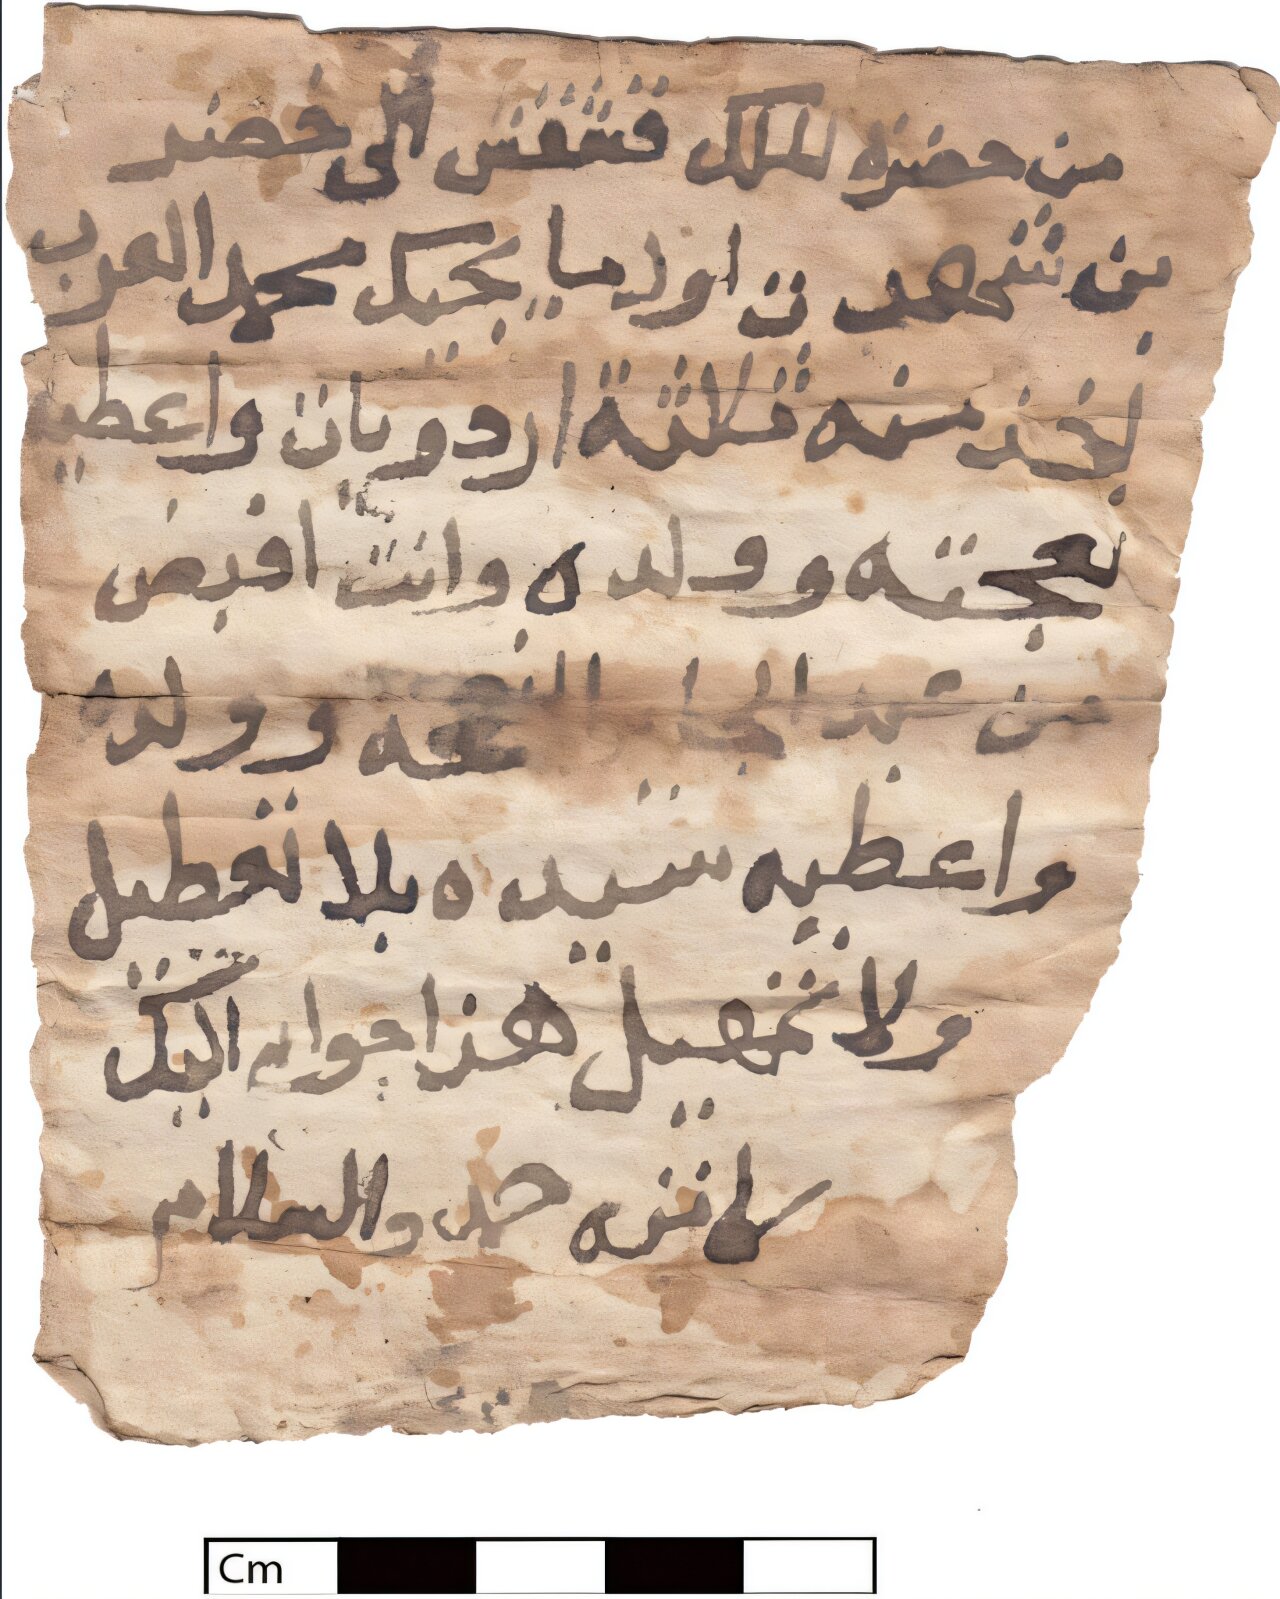 من حضره الملك قشقش الى خضر
بن شهدت اول ما يجيك محمد العرب
لخذ منه ثلاثة اردويات واعطيه
نعجته وولده وانت اقبض
من عبد الجابر النعجه وولده
واعطيه سيده بلا تعطيل
ولا تمهيل هذا جوابى اليك
لا تزه حد والسلام
Cm